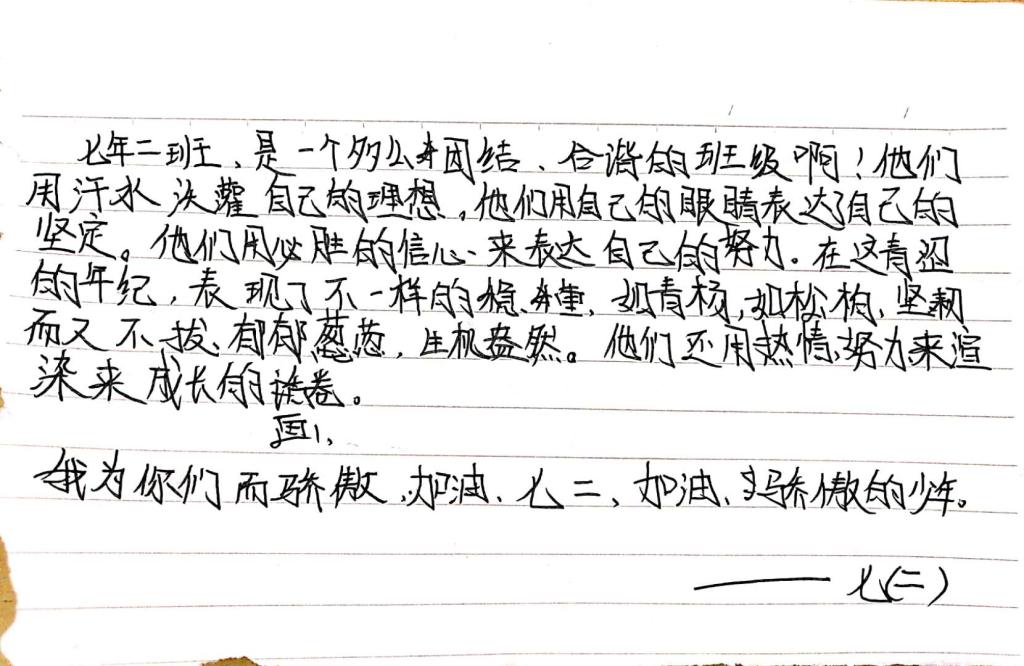 七年二班、是一个多么多么团结、合谐的班级啊！他们
用汗水浇灌自己的理想，他们用自己的眼睛表达了自己的
坚定。他们用必胜的信心、来表达自己的努力。在这青涩
的年纪，表现了不一样的稳重，如青杨，如松柏，坚韧
而又不拔、郁郁葱葱，生机盎然。他们还用热情、努力来渲
染来成长的卷。
画
我为你们而骄傲、加油、七二、加油、骄傲的少年。
——七(二)